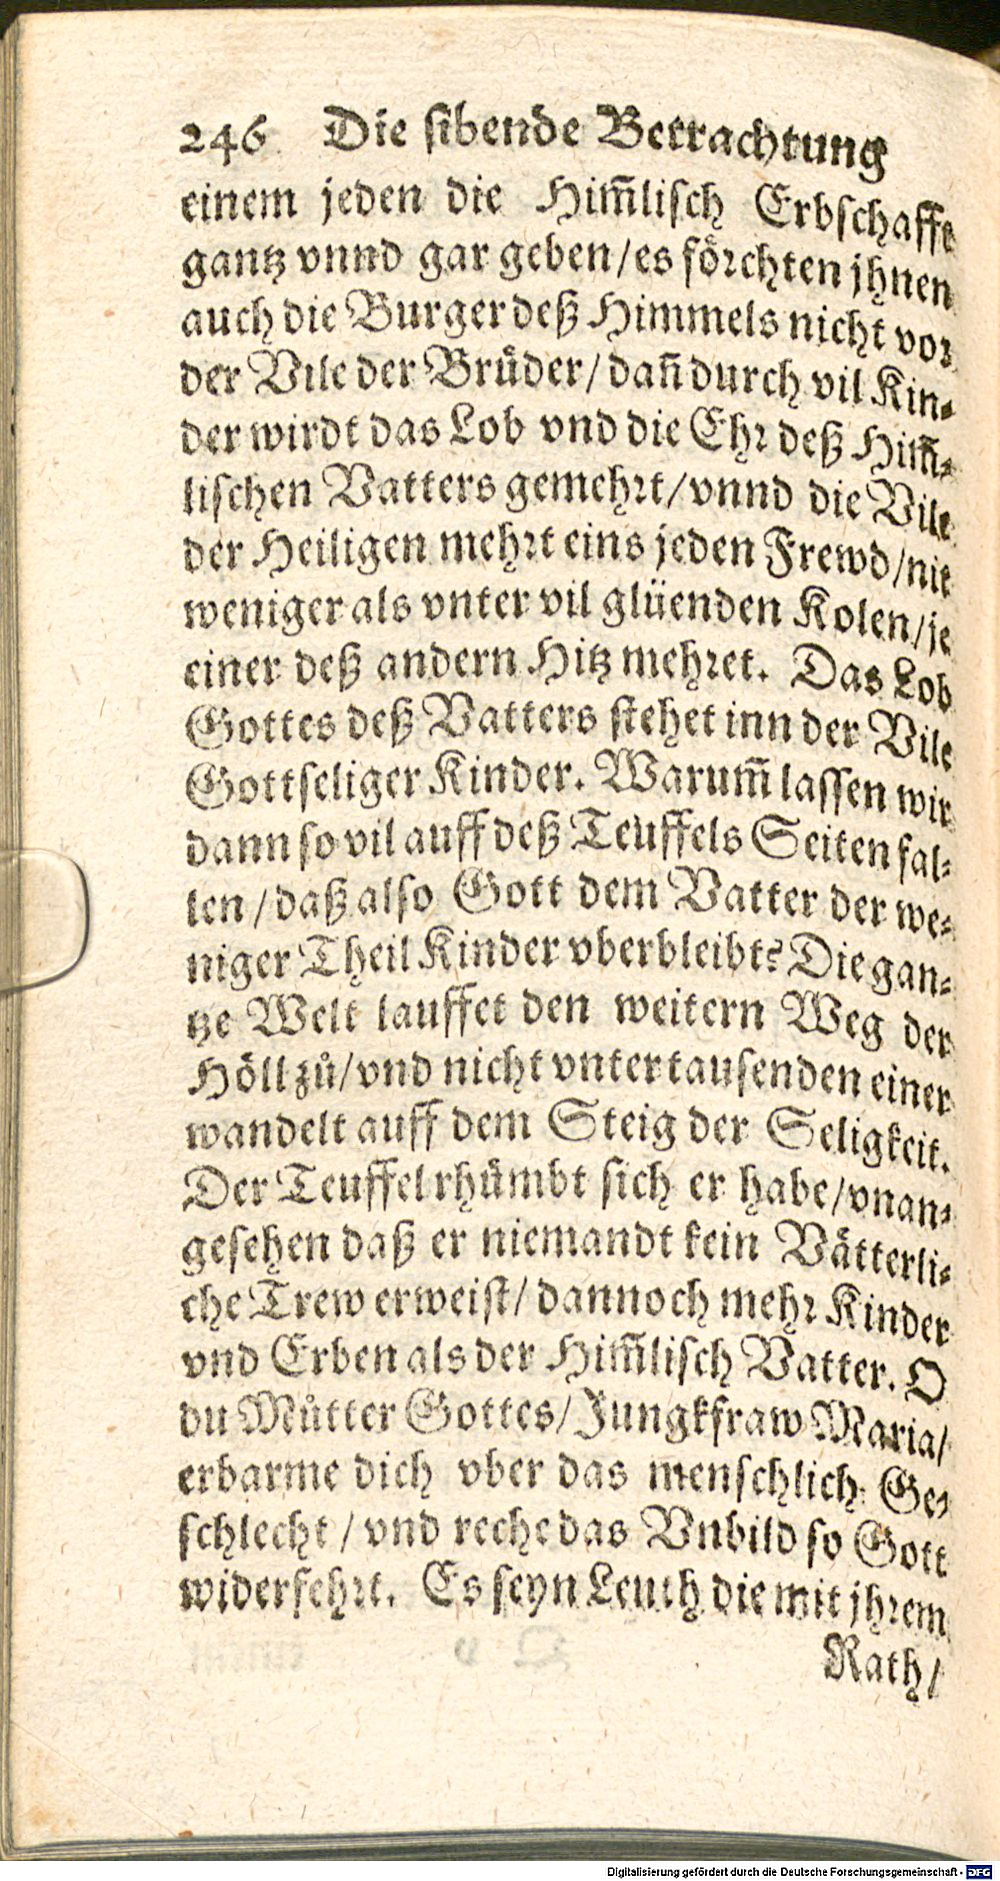 246 Die sibende Betrachtung
einem jeden die Him̃lisch Erbschafft
gantz vnnd gar geben/es förchten jhnen
auch die Burger deß Himmels nicht vor
der Vile der Brüder/dañ durch vil Kin⸗
der wirdt das Lob vnd die Ehr deß Him̃⸗
lischen Vatters gemehrt/vnnd die Vile
der Heiligen mehrt eins jeden Frewd/nit
weniger als vnter vil glüenden Kolen/je
einer deß andern Hitz mehret. Das Lob
Gottes deß Vatters stehet inn der Vile
Gottseliger Kinder. Warum̃ lassen wir
dann so vil auff deß Teuffels Seiten fal⸗
len/daß also Gott dem Vatter der we⸗
niger Theil Kinder vberbleibt? Die gan⸗
tze Welt lauffet den weitern Weg der
Höll zů/vnd nicht vnter tausenden einer
wandelt auff dem Steig der Seligkeit.
Der Teuffel rhümbt sich er habe/vnan⸗
gesehen daß er niemandt kein Vätterli⸗
che Trew erweist/dannoch mehr Kinder
vnd Erben als der Him̃lisch Vatter. O
du Můtter Gottes/Jungkfraw Maria/
erbarme dich vber das menschlich Ge⸗
schlecht/vnd reche das Vnbild so Gott
widerfehrt. Es seyn Leuth die mit jhrem
Rath/
Digitalisierung gefördert durch die Deutsche Forschungsgemeinschaft - DFG